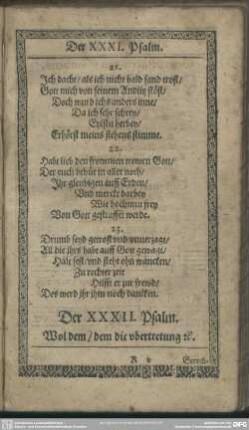 Der XXXI. Psalm.
21.
Ich dacht / als ich nicht bald fand trost /
Gott mich von seinem Antlitz stöst /
Doch ward ichs anders inne /
Da ich sehr schrey /
Erhörst meins flehens stimme.
22.
Habt lieb den frommen trewen Gott /
Der euch behüt in aller noth /
Ihr gleubigen auff Erden /
Und merckt darbey
Wie hochmut frey
Von Gott gestrafft werde.
23.
Drumb seyd getrost und unverzagt /
All die ihrs habt auff Gott gewagt /
Halt fest / und steht ohn wancken /
Zu rechter zeit
Hilfft er zur frewd /
Des werd ihr ihm noch dancken.
Der XXXII. Psalm.
Wol dem / dem die ubertretung ꝛc.
R v